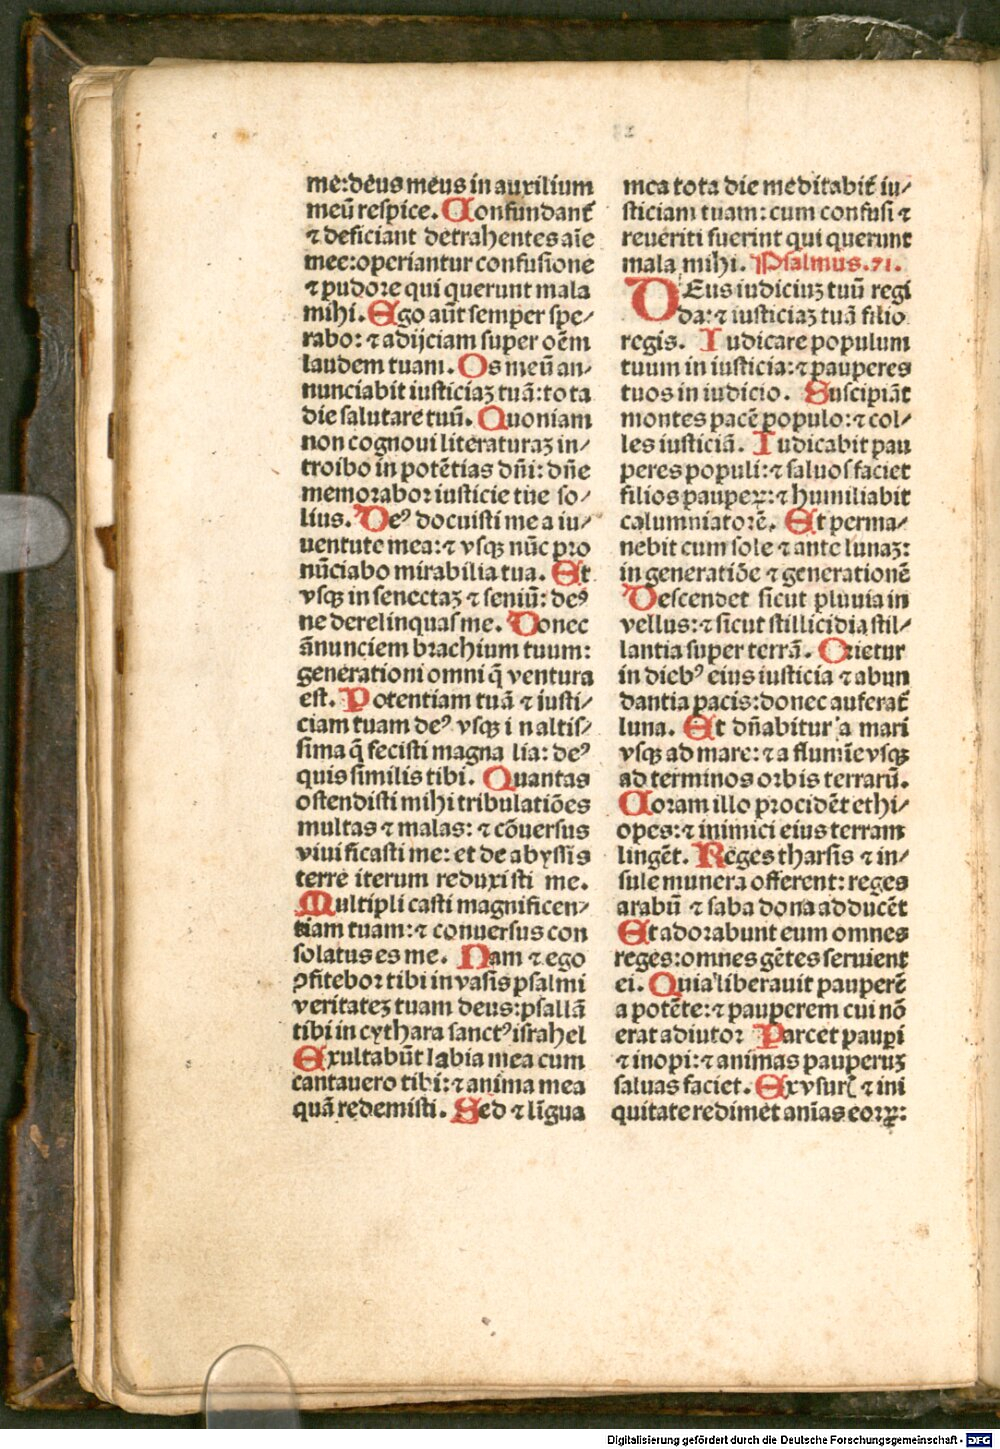 me:deus meus in auxilium
meū respice. Confundant᷑
⁊ deficiant detrahentes aīe
mee:operiantur confusione
⁊ pudore qui querunt mala
mihi. Ego aūt semper spe⸗
rabo: ⁊ adijciam super oēm
laudem tuam. Os meū an⸗
nunciabit iusticiaꝫ tuā:tota
die salutare tuū. Quoniam
non cognoui literaturaꝫ in⸗
troibo in potētias dn̄i: dn̄e
memorabor iusticie tue so⸗
lius. Deꝰ docuisti me a iu⸗
uentute mea:⁊ vsqꝫ nūc pro
nūciabo mirabilia tua. Et
vsqꝫ in senectaꝫ ⁊ seniū: deꝰ
ne derelinquas me. Donec
ānunciem brachium tuum:
generationi omni q̄ ventura
est. Potentiam tuā ⁊ iusti⸗
ciam tuam deꝰ vsqꝫ in altis⸗
sima q̄ fecisti magnalia: deꝰ
quis similis tibi. Quantas
ostendisti mihi tribulatiōes
multas ⁊ malas: ⁊ cōuersus
viuificasti me: et de abyssis
terre iterum reduxisti me.
Multiplicasti magnificen⸗
tiam tuam:⁊ conuersus con
solatus es me. Nam ⁊ ego
ꝯfitebor tibi in vasis psalmi
veritateꝫ tuam deus:psallā
tibi in cythara sanctꝰ israhel
Exultabūt labia mea cum
cantauero tibi:⁊ anima mea
quā redemisti. Sed ⁊ līgua
mea tota die meditabit᷑ iu⸗
sticiam tuam: cum confusi ⁊
reueriti fuerint qui querunt
mala mihi. Psalmus.71.
DEus iudiciuꝫ tuū regi
da:⁊ iusticiaꝫ tuā filio
regis. Iudicare populum
tuum in iusticia:⁊ pauperes
tuos in iudicio. Suscipiāt
montes pacē populo:⁊ col⸗
les iusticiā. Iudicabit pau
peres populi:⁊ saluos faciet
filios paupeꝝ:⁊ humiliabit
calumniatorē. Et perma⸗
nebit cum sole ⁊ ante lunaꝫ:
in generatiōe ⁊ generationē
Descendet sicut pluuia in
vellus:⁊ sicut stillicidia stil⸗
lantia super terrā. Orietur
in diebꝰ eius iusticia ⁊ abun
dantia pacis:donec auferat᷑
luna. Et dn̄abitur a mari
vsqꝫ ad mare:⁊ a flumīe vsqꝫ
ad terminos orbis terrarū.
Coram illo procidēt ethi⸗
opes:⁊ inimici eius terram
lingēt. Reges tharsis ⁊ in⸗
sule munera offerent: reges
arabū ⁊ saba dona adducēt
Et adorabunt eum omnes
reges:omnes gētes seruient
ei. Quia liberauit pauperē
a potēte:⁊ pauperem cui nō
erat adiutor Parcet pauꝑi
⁊ inopi:⁊ animas pauperuꝫ
saluas faciet. Ex vsuri᷑ ⁊ ini
quitate redimet anīas eoꝝ:
Digitalisierung gefördert durch die Deutsche Forschungsgemeinschaft - DFG